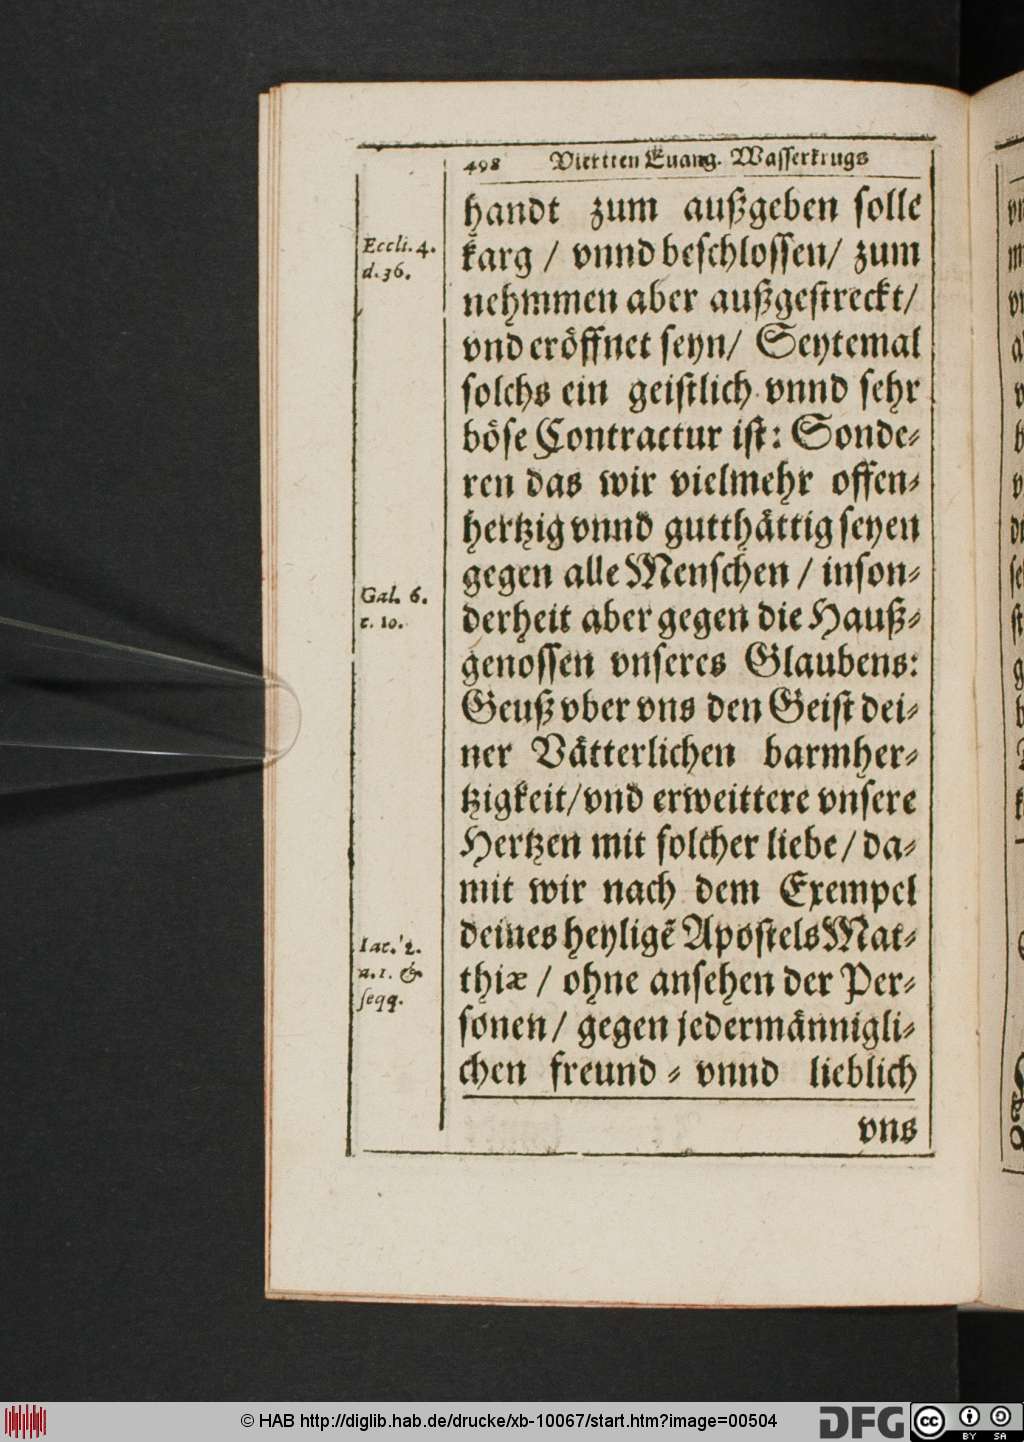 498 Viertten Euang. Wasserkrugs
handt zum außgeben solle
Eccli. 4.
d. 36.
karg / vnnd beschlossen / zum
nehmmen aber außgestreckt /
vnd eröffnet seyn / Seytemal
solchs ein geistlich vnnd sehr
böse Contractur ist : Sonde⸗
ren das wir vielmehr offen⸗
hertzig vnnd gutthättig seyen
gegen alle Menschen / inson⸗
Gal. 6.
c. 10.
derheit aber gegen die Hauß⸗
genossen vnseres Glaubens:
Geuß vber vns den Geist dei⸗
ner Vätterlichen barmher⸗
tzigkeit / vnd erweittere vnsere
Hertzen mit solcher liebe / da⸗
mit wir nach dem Exempel
deines heyligẽ Apostels Mat⸗
Iac. 2.
a. 1. &
seqq.
thiæ / ohne ansehen der Per⸗
sonen / gegen jedermännigli⸗
chen freund ⸗ vnnd lieblich
vns
© HAB http://diglib.hab.de/drucke/xb-10067/start.htm?image=00504
DFG
cc BY SA